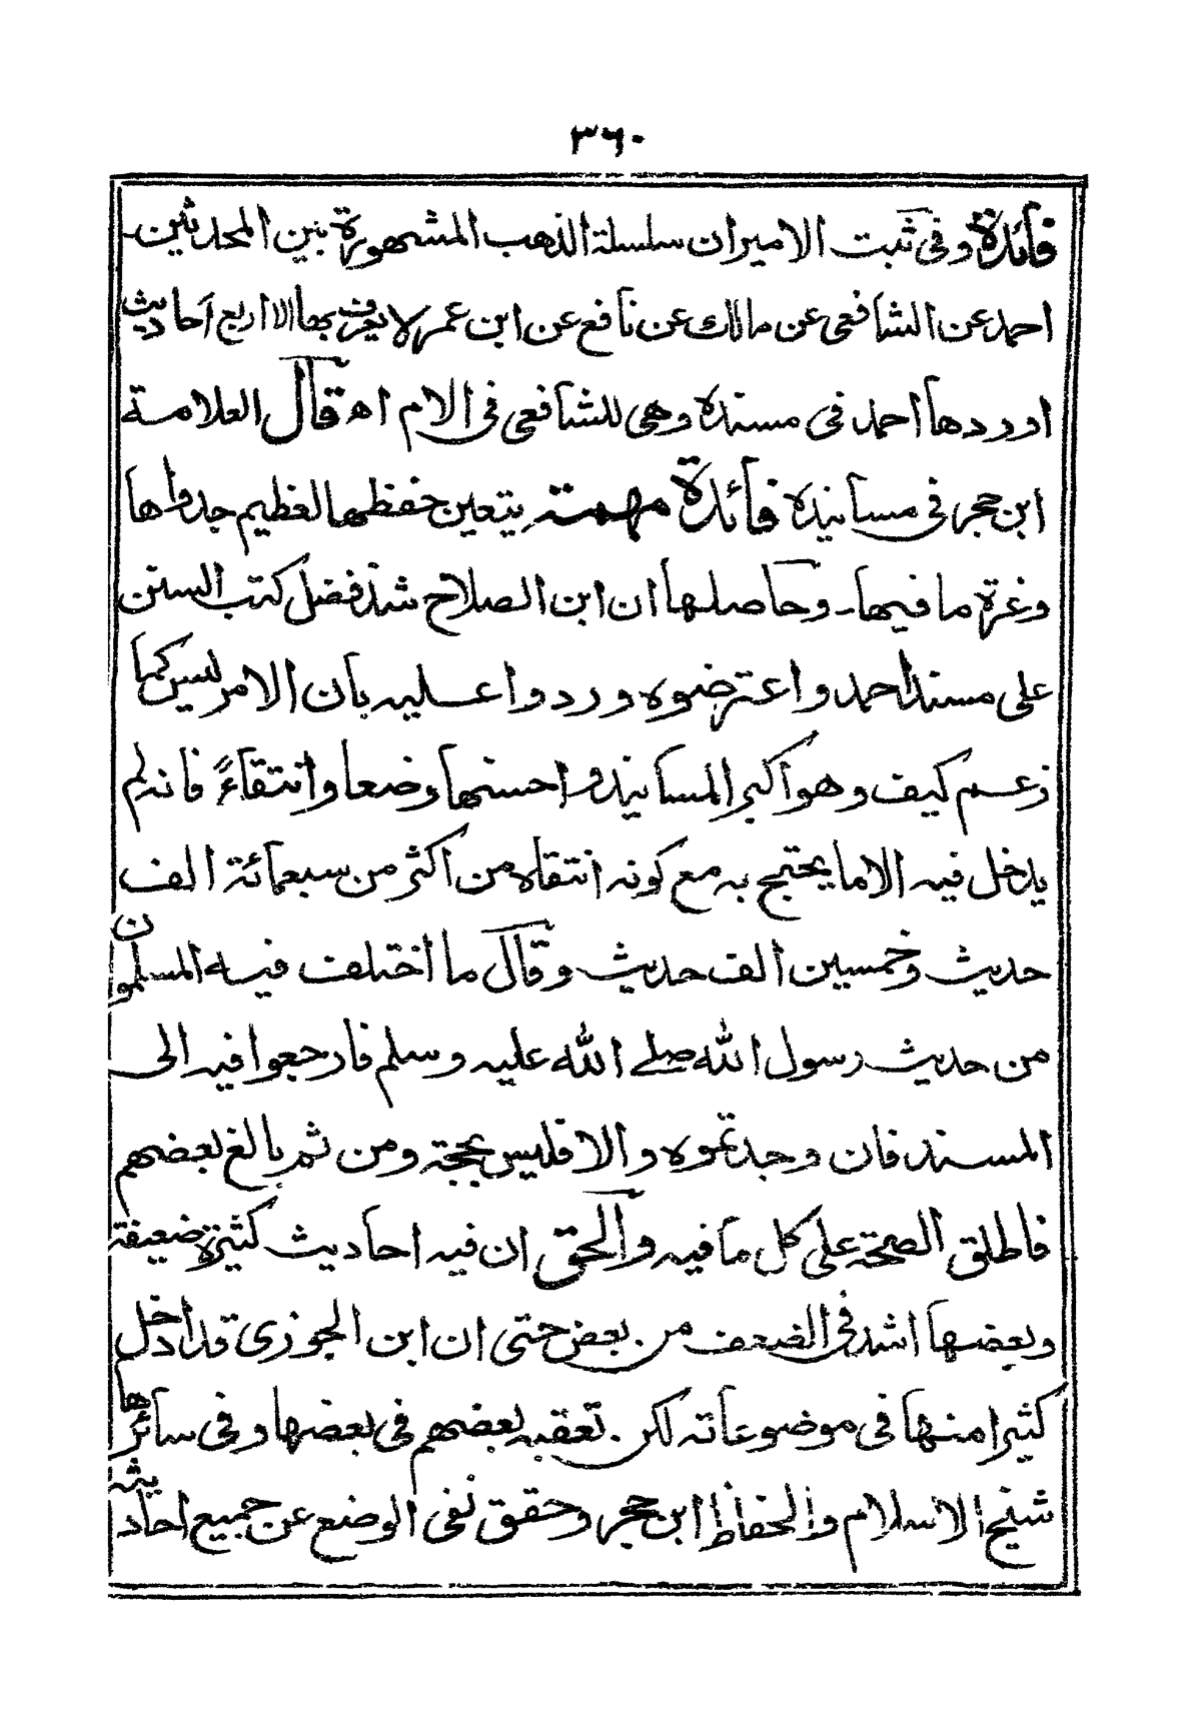 ٣٦٠
فائدة وفى ثبت الامير ان سلسلة الذهب المشهورة بين المحدثين
احمد عن الشافعى عن مالك عن نافع عن ابن عمر لا يعرف بها الا اربع احاديث
اوردها احمد فى مسنده وهى للشافعى فى الام اھ قال العلامة
ابن حجر فى مسانيده فائدة مهمة يتعين حفظها لعظيم جدواها
وغرة ما فيها وحاصلها ان ابن الصلاح شذ ففضل كتب السنن
على مسند احمد واعترضوه وردوا عليه بان الامر ليس كما
زعم كيف وهو اكبر المسانيد واحسنها وضعا وانتقاءً فانه لم
يدخل فيه الا ما يحتج به مع كونه انتقاه من اكثر من سبعمائة الف
حديث وخمسين الف حديث وقال ما اختلف فيه المسلمون
من حديث رسول الله صلے الله عليه وسلم فارجعوا فيه الى
المسند فان وجدتموه والا فليس بحجة ومن ثم بالغ بعضهم
فاطلق الصحة على كل ما فيه والحق ان فيه احاديث كثيرة ضعيفة
وبعضها اشد فى الضعف من بعض حتى ان ابن الجوزى قد ادخل
كثيرا منها فى موضوعاته لكن تعقبه بعضهم فى بعضها وفى سائرها
شيخ الاسلام والحفاظ ابن حجر وحقق نفى الوضع عن جميع احاديثه